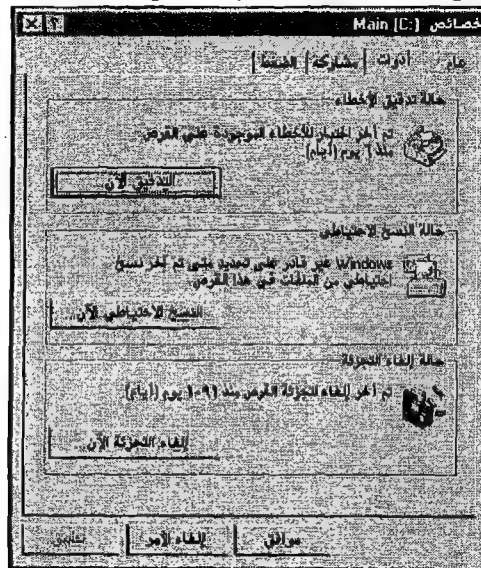 خصائص Main (C:)
عام أدوات مشاركة الضغط
حالة تدقيق الأخطاء
تم آخر اختبار للأخطاء الموجودة على القرص
منذ ٦ يوم (أيام)
التدقيق الآن...
حالة النسخ الاحتياطي
Windows غير قادر على تحديد متى تم آخر نسخ
احتياطي من الملفات في هذا القرص.
النسخ الاحتياطي الآن...
حالة إلغاء التجزئة
تم آخر إلغاء التجزئة القرص منذ ١٠٩٦ يوم (أيام)
إلغاء التجزئة الآن...
موافق إلغاء الأمر تطبيق